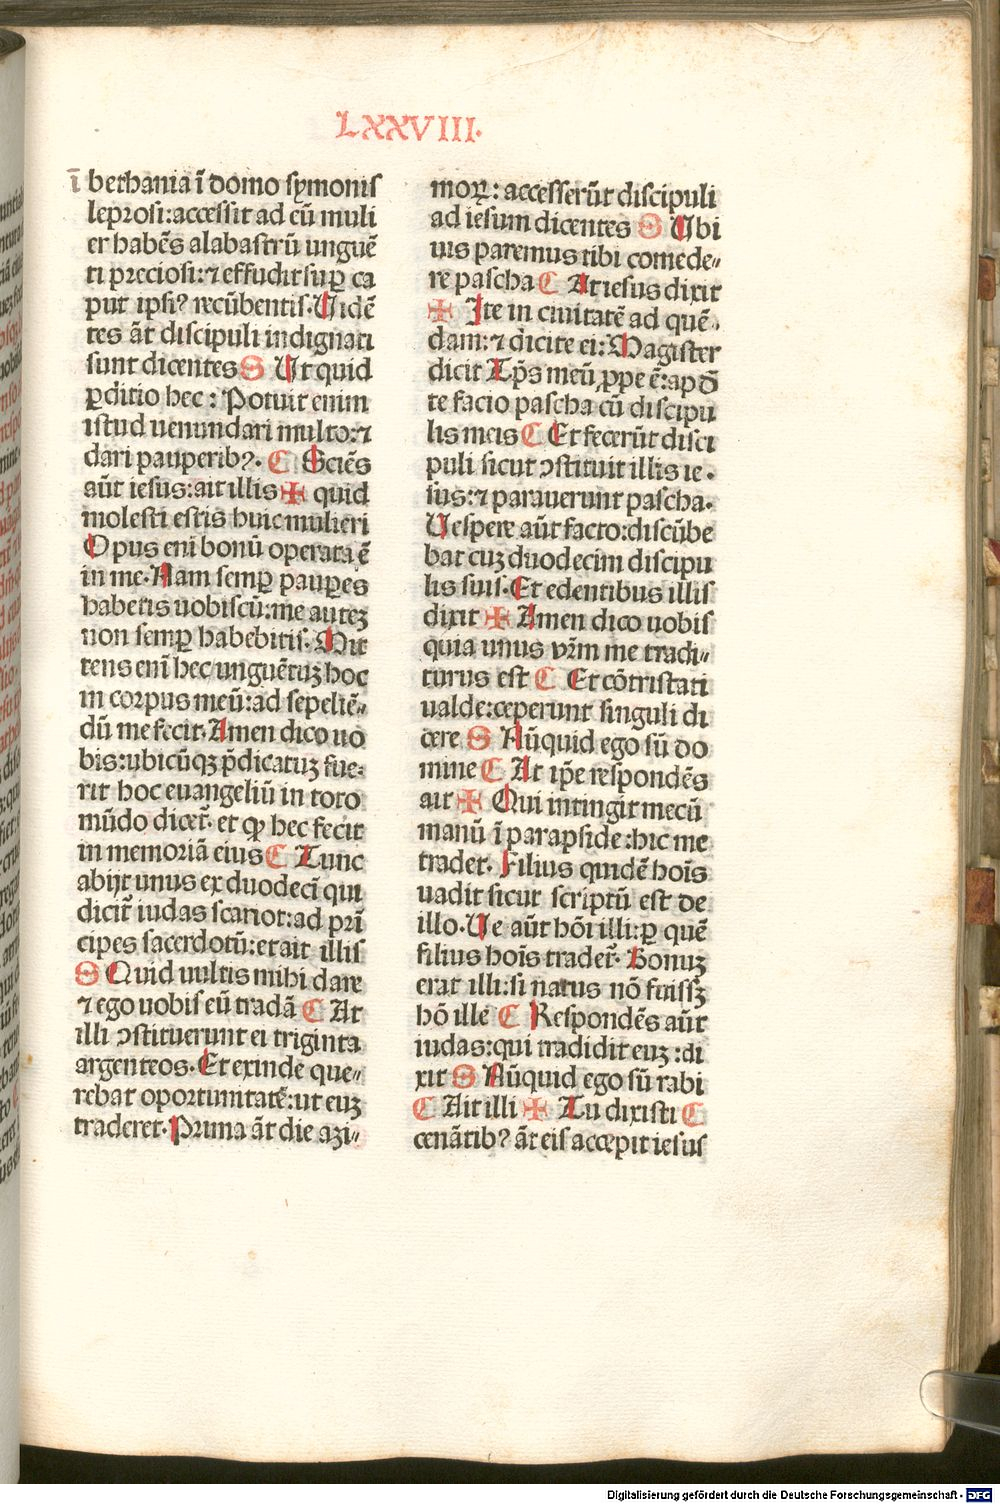 LXXVIII.
ī bethania ī domo symonis
leprosi: accessit ad eū muli
er habēs alabastrū unguē
ti preciosi: ⁊ effudit suꝑ ca
put ipsiꝰ recūbentis. Vidē
tes āt discipuli indignati
sunt dicentes S Ut quid
ꝑditio hec: Potuit enim
istud uenundari multo: ⁊
dari pauperibꝰ. C Sciēs
aūt iesus: ait illis ✠ quid
molesti estis huic mulieri
Opus eni bonū operata ē
in me. Nam semꝑ pauꝑes
habetis uobiscū: me autez
non semꝑ habebitis. Mit
tens enī hec unguētuz hoc
in corpus meū: ad sepeliē〃
dū me fecit. Amen dico uo
bis: ubicūqꝫ p̄dicatuz fue〃
rit hoc euangeliū in toto
mūdo dicet᷑. et ꝙ hec fecit
in memoriā eius C Tunc
abijt unus ex duodecī qui
dicit᷑ iudas scariot: ad prī
cipes sacerdotū: et ait illis
S Quid uultis mihi dare
⁊ ego uobis eū tradā C At
illi ↄstituerunt ei triginta
argenteos. Et exinde que〃
rebat oportunitatē: ut euz
traderet. Prima āt die azi〃
moꝝ: accesserūt discipuli
ad iesum dicentes S Ubi
uis paremus tibi comede〃
re pascha C At iesus dixit
✠ Ite in ciuitatē ad quē〃
dam: ⁊ dicite ei: Magister
dicit Tp̄s meū ꝓpe ē: apd̄
te facio pascha cū discipu
lis meis C Et fecerūt disci
puli sicut ↄstituit illis ie〃
sus: ⁊ parauerunt pascha.
Vespere aūt facto: discūbe
bat cuz duodecim discipu
lis suis. Et edentibus illis
dixit ✠ Amen dico uobis
quia unus vr̄m me tradi〃
turus est C Et cōtristati
ualde: ceperunt singuli di
cere S Nūquid ego sū do
mine C At ip̄e respondēs
ait ✠ Qui intingit mecū
manū ī parapside: hic me
tradet. Filius quidē hoīs
uadit sicut scriptū est de
illo. Ve aūt hōi illi: ꝑ quē
filius hoīs tradet᷑. Bonuz
erat illi: si natus nō fuissꝫ
hō ille C Respondēs aūt
iudas: qui tradidit euz: di
xit S Nūquid ego sū rabi
C Ait illi ✠ Tu dixisti C
cenātibꝰ āt eis accepit iesus
Digitalisierung gefördert durch die Deutsche Forschungsgemeinschaft - DFG